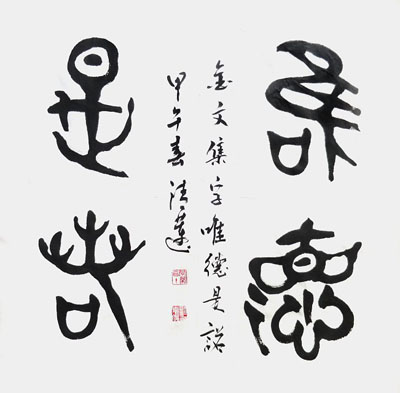 唯德
金文集字唯德是諾
甲午春清蓮
是諾